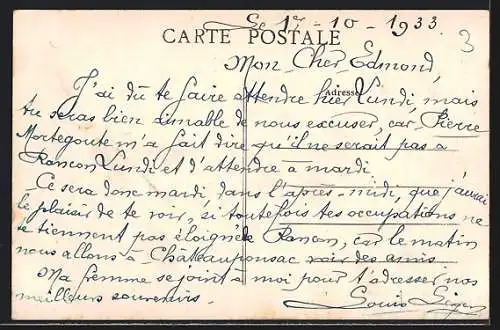 Le 17-10-1933.
CARTE POSTALE
3
Mon Cher Edmond,
Adresse
J'ai dû te faire attendre hier Lundi, mais
tu seras bien aimable de nous excuser, car Pierre
Mortegoute m'a fait dire qu'il ne serait pas à
Rancon Lundi et d'attendre à mardi.
Ce sera donc mardi, dans l'après-midi, que j'aurai
le plaisir de te voir, si toutefois tes occupations ne
te tiennent pas éloigné de Rancon, car le matin
nous allons à Châteauponsac voir des amis
Ma femme se joint à moi pour t'adresser nos
meilleurs souvenirs.
Louis